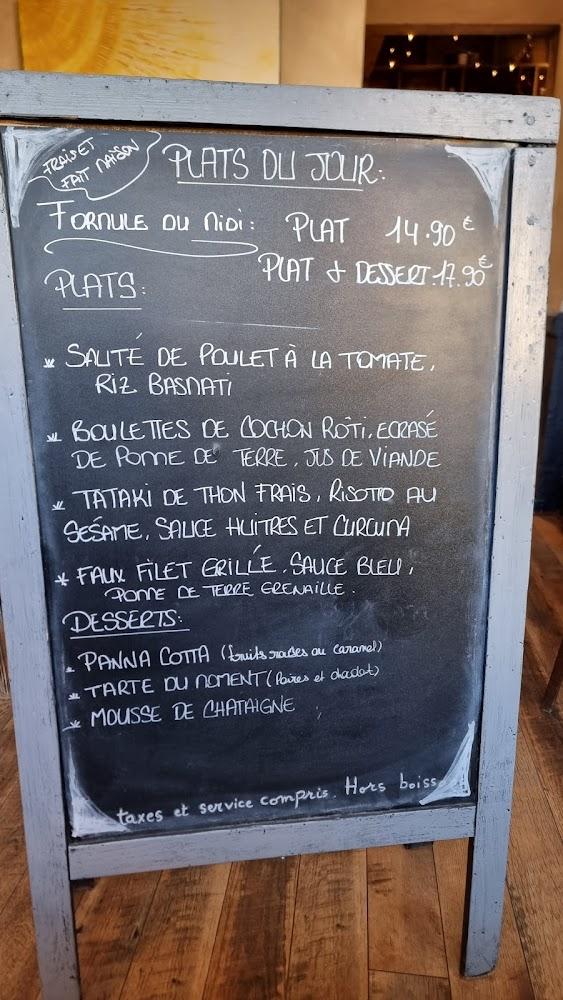 FRAIS ET
FAIT MAISON
PLATS DU JOUR:
FORMULE DU MIDI: PLAT 14.90€
PLAT + DESSERT: 17.90€
PLATS:
* SAUTÉ DE POULET À LA TOMATE,
RIZ BASMATI
* BOULETTES DE COCHON RÔTI, ECRASÉ
DE POMME DE TERRE, JUS DE VIANDE
* TATAKI DE THON FRAIS, RISOTTO AU
SESAME, SAUCE HUITRES ET CURCUMA
* FAUX FILET GRILLÉ, SAUCE BLEU,
POMME DE TERRE GRENAILLE.
DESSERTS:
* PANNA COTTA (fruits rouges ou caramel)
* TARTE DU MOMENT (Poires et chocolat)
* MOUSSE DE CHATAIGNE
taxes et service compris. Hors boiss